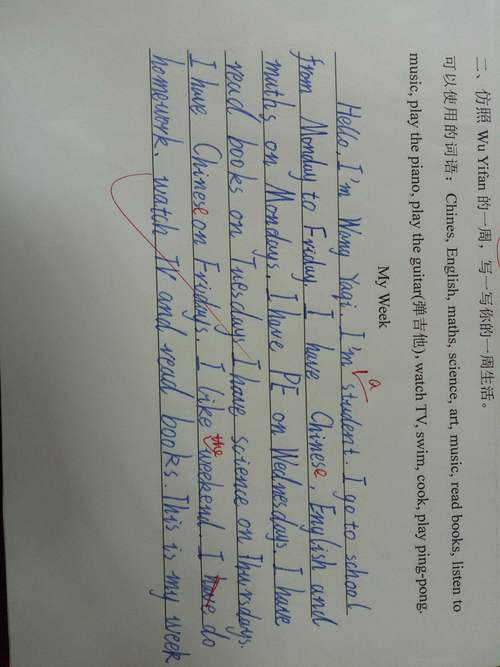 二、仿照 Wu Yifan 的一周，写一写你的一周生活。
可以使用的词语：Chines, English, maths, science, art, music, read books, listen to
music, play the piano, play the guitar(弹吉他), watch TV, swim, cook, play ping-pong.
My Week
Hello, I'm Wang Yaqi. I'm a student. I go to school
from Monday to Friday. I have Chinese, English and
maths on Mondays. I have PE on Wednesdays. I have
read books on Tuesdays. I have science on Thursdays.
I have Chinese on Fridays. I like the weekend. I have do
homework, watch TV and read books. This is my week